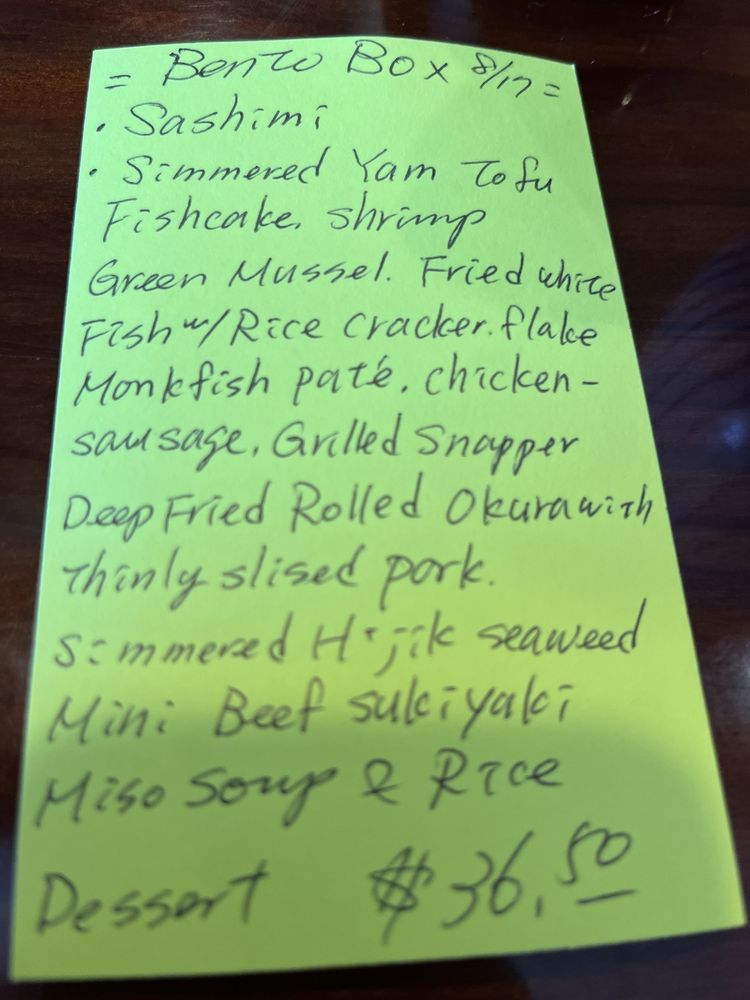 = Bento Box 8/17 =
• Sashimi
• Simmered Yam Tofu
Fishcake. shrimp
Green Mussel. Fried white
Fish w/Rice cracker.flake
Monkfish paté. chicken-
sausage. Grilled Snapper
Deep Fried Rolled Okura with
thinly slised pork.
Simmered Hijik seaweed
Mini Beef sukiyaki
Miso Soup & Rice
Dessert $36.50